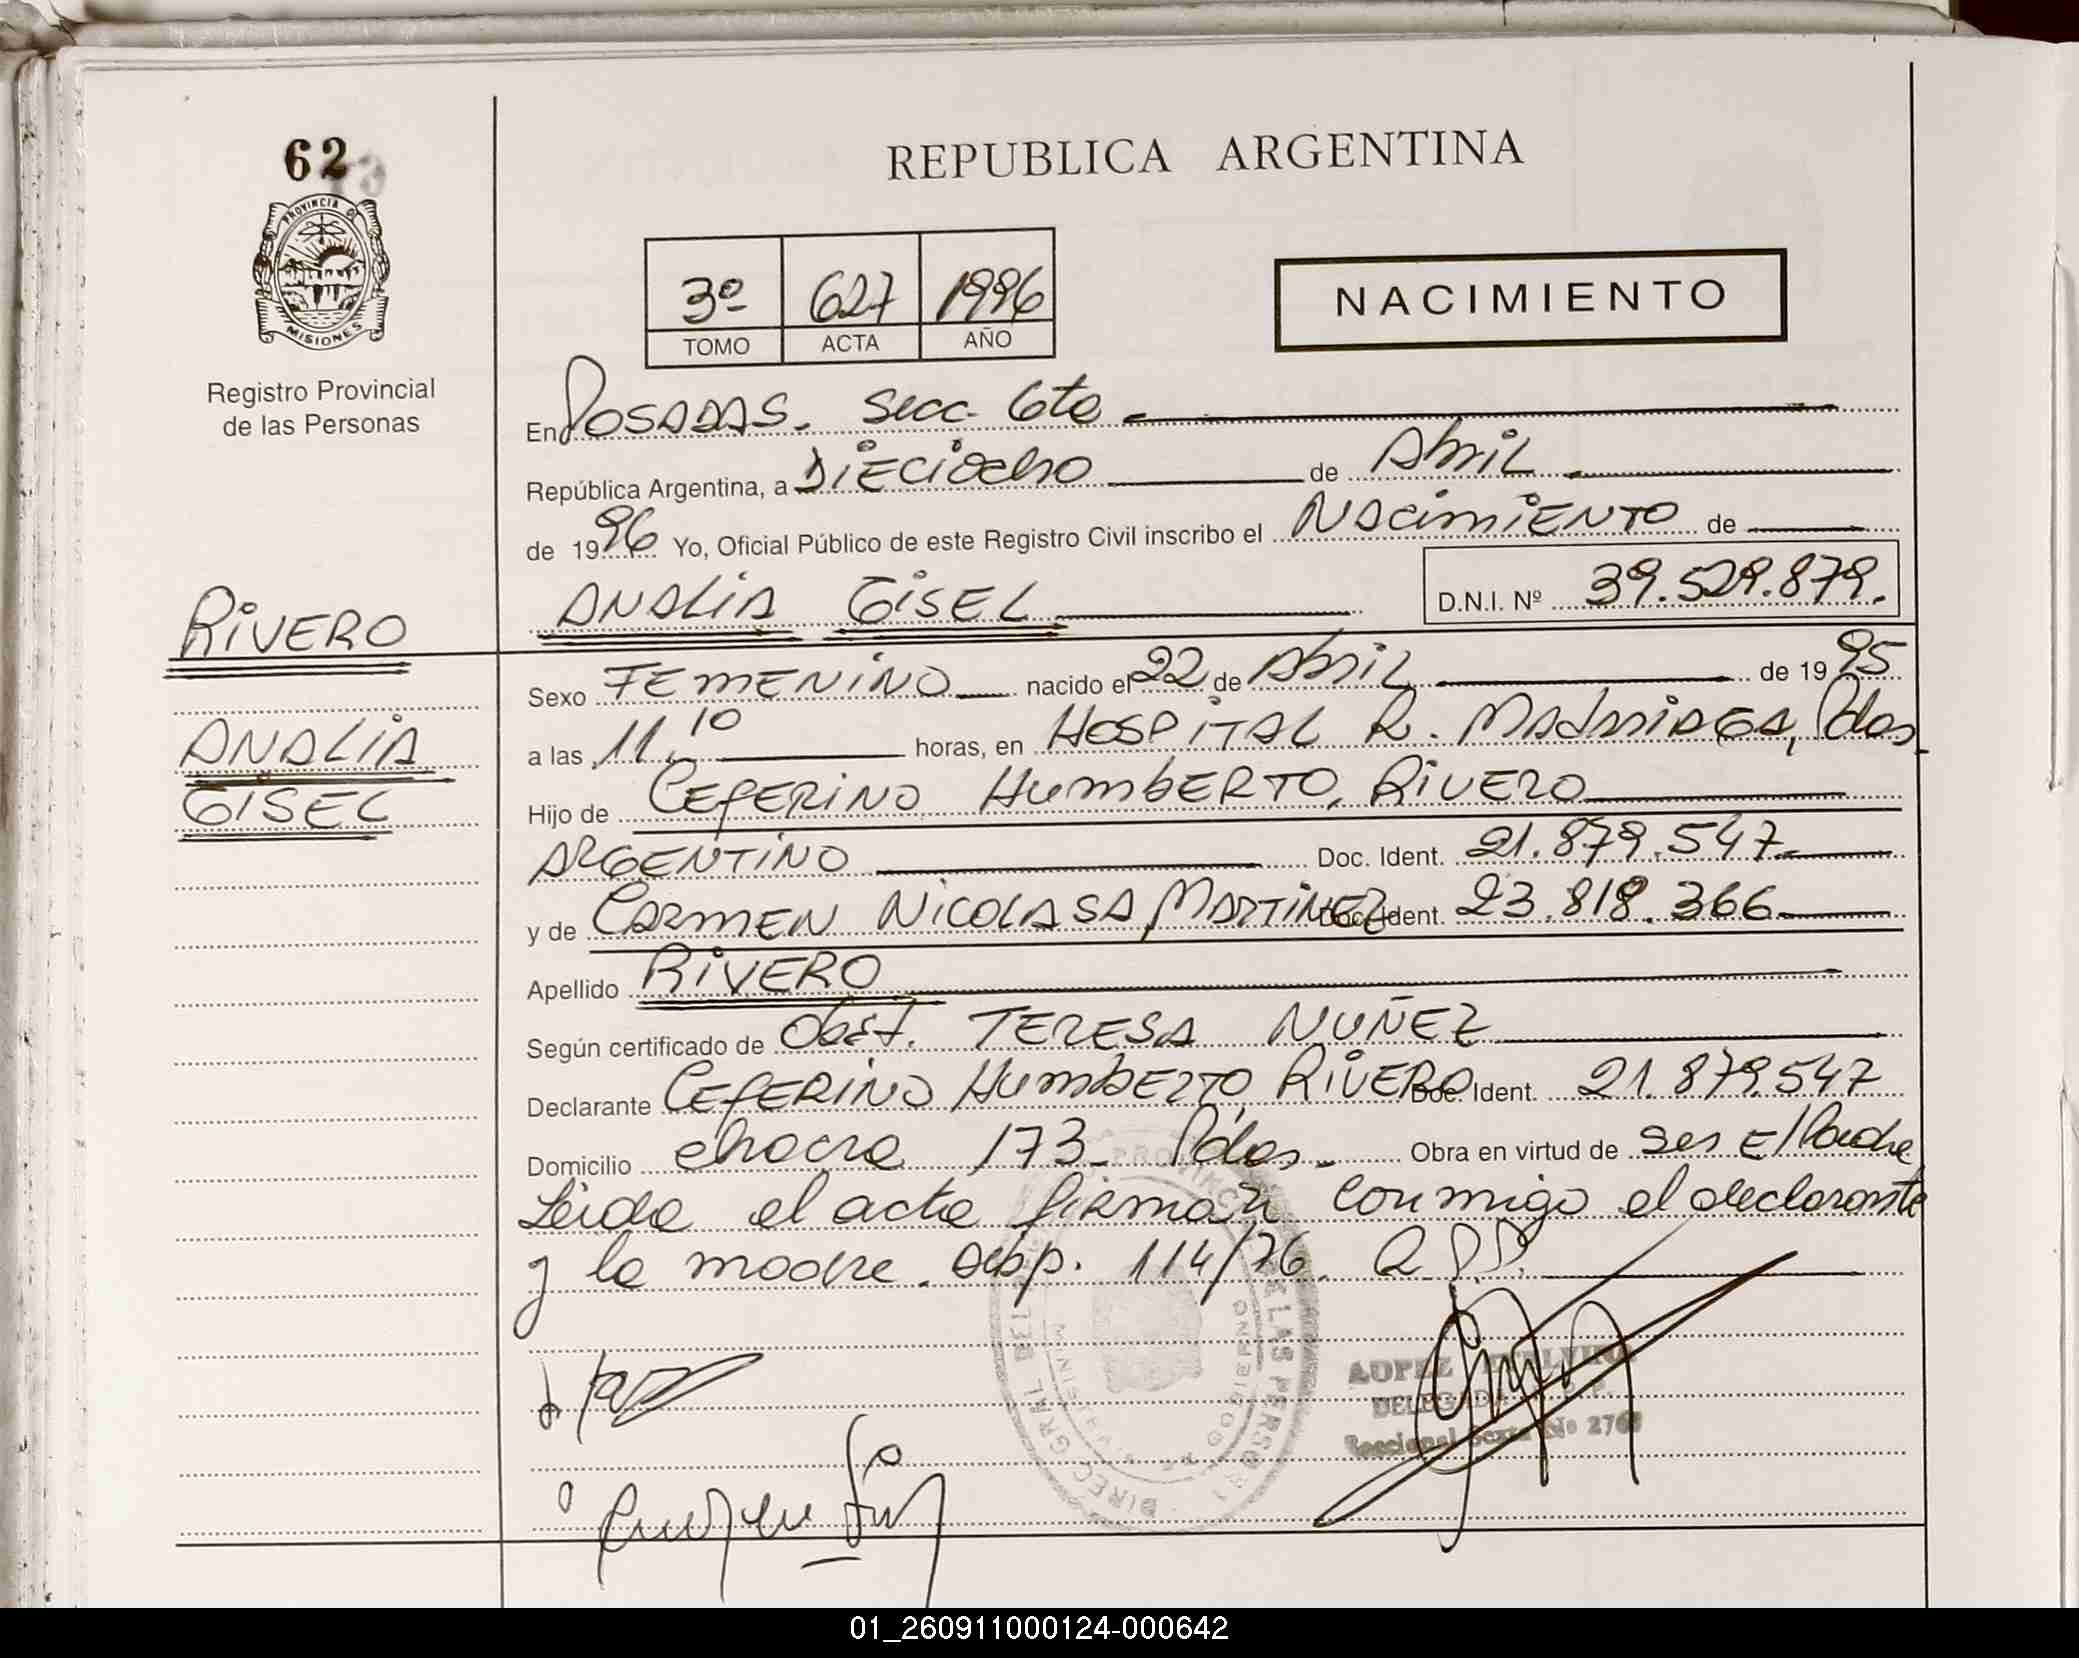 62
PROVINCIA DE
MISIONES
Registro Provincial
de las Personas
REPUBLICA ARGENTINA
3º 627 1996
TOMO ACTA AÑO
NACIMIENTO
En POSADAS. Secc. 6ta
República Argentina, a DIECIOCHO de Abril
de 1996 Yo, Oficial Público de este Registro Civil inscribo el NACIMIENTO de
ANALIA GISEL D.N.I. Nº 39.529.879.
RIVERO
ANALIA
GISEL
Sexo FEMENINO nacido el 22 de Abril de 1995
a las 11,10 horas, en HOSPITAL R. MADARIAGA, Pdas.
Hijo de CEFERINO HUMBERTO, RIVERO
ARGENTINO Doc. Ident. 21.879.547
y de CARMEN NICOLASA, MARTINEZ Doc. Ident. 23.818.366
Apellido RIVERO
Según certificado de Obst. TERESA NUÑEZ
Declarante CEFERINO HUMBERTO, RIVERO Doc. Ident. 21.879.547
Domicilio chacra 173 Pdas. Obra en virtud de ser El Padre
Leida el acta firman conmigo el declarante
y la madre. Disp. 114/76.
DELEGADA
Seccional Sexta Nº
01_260911000124-000642